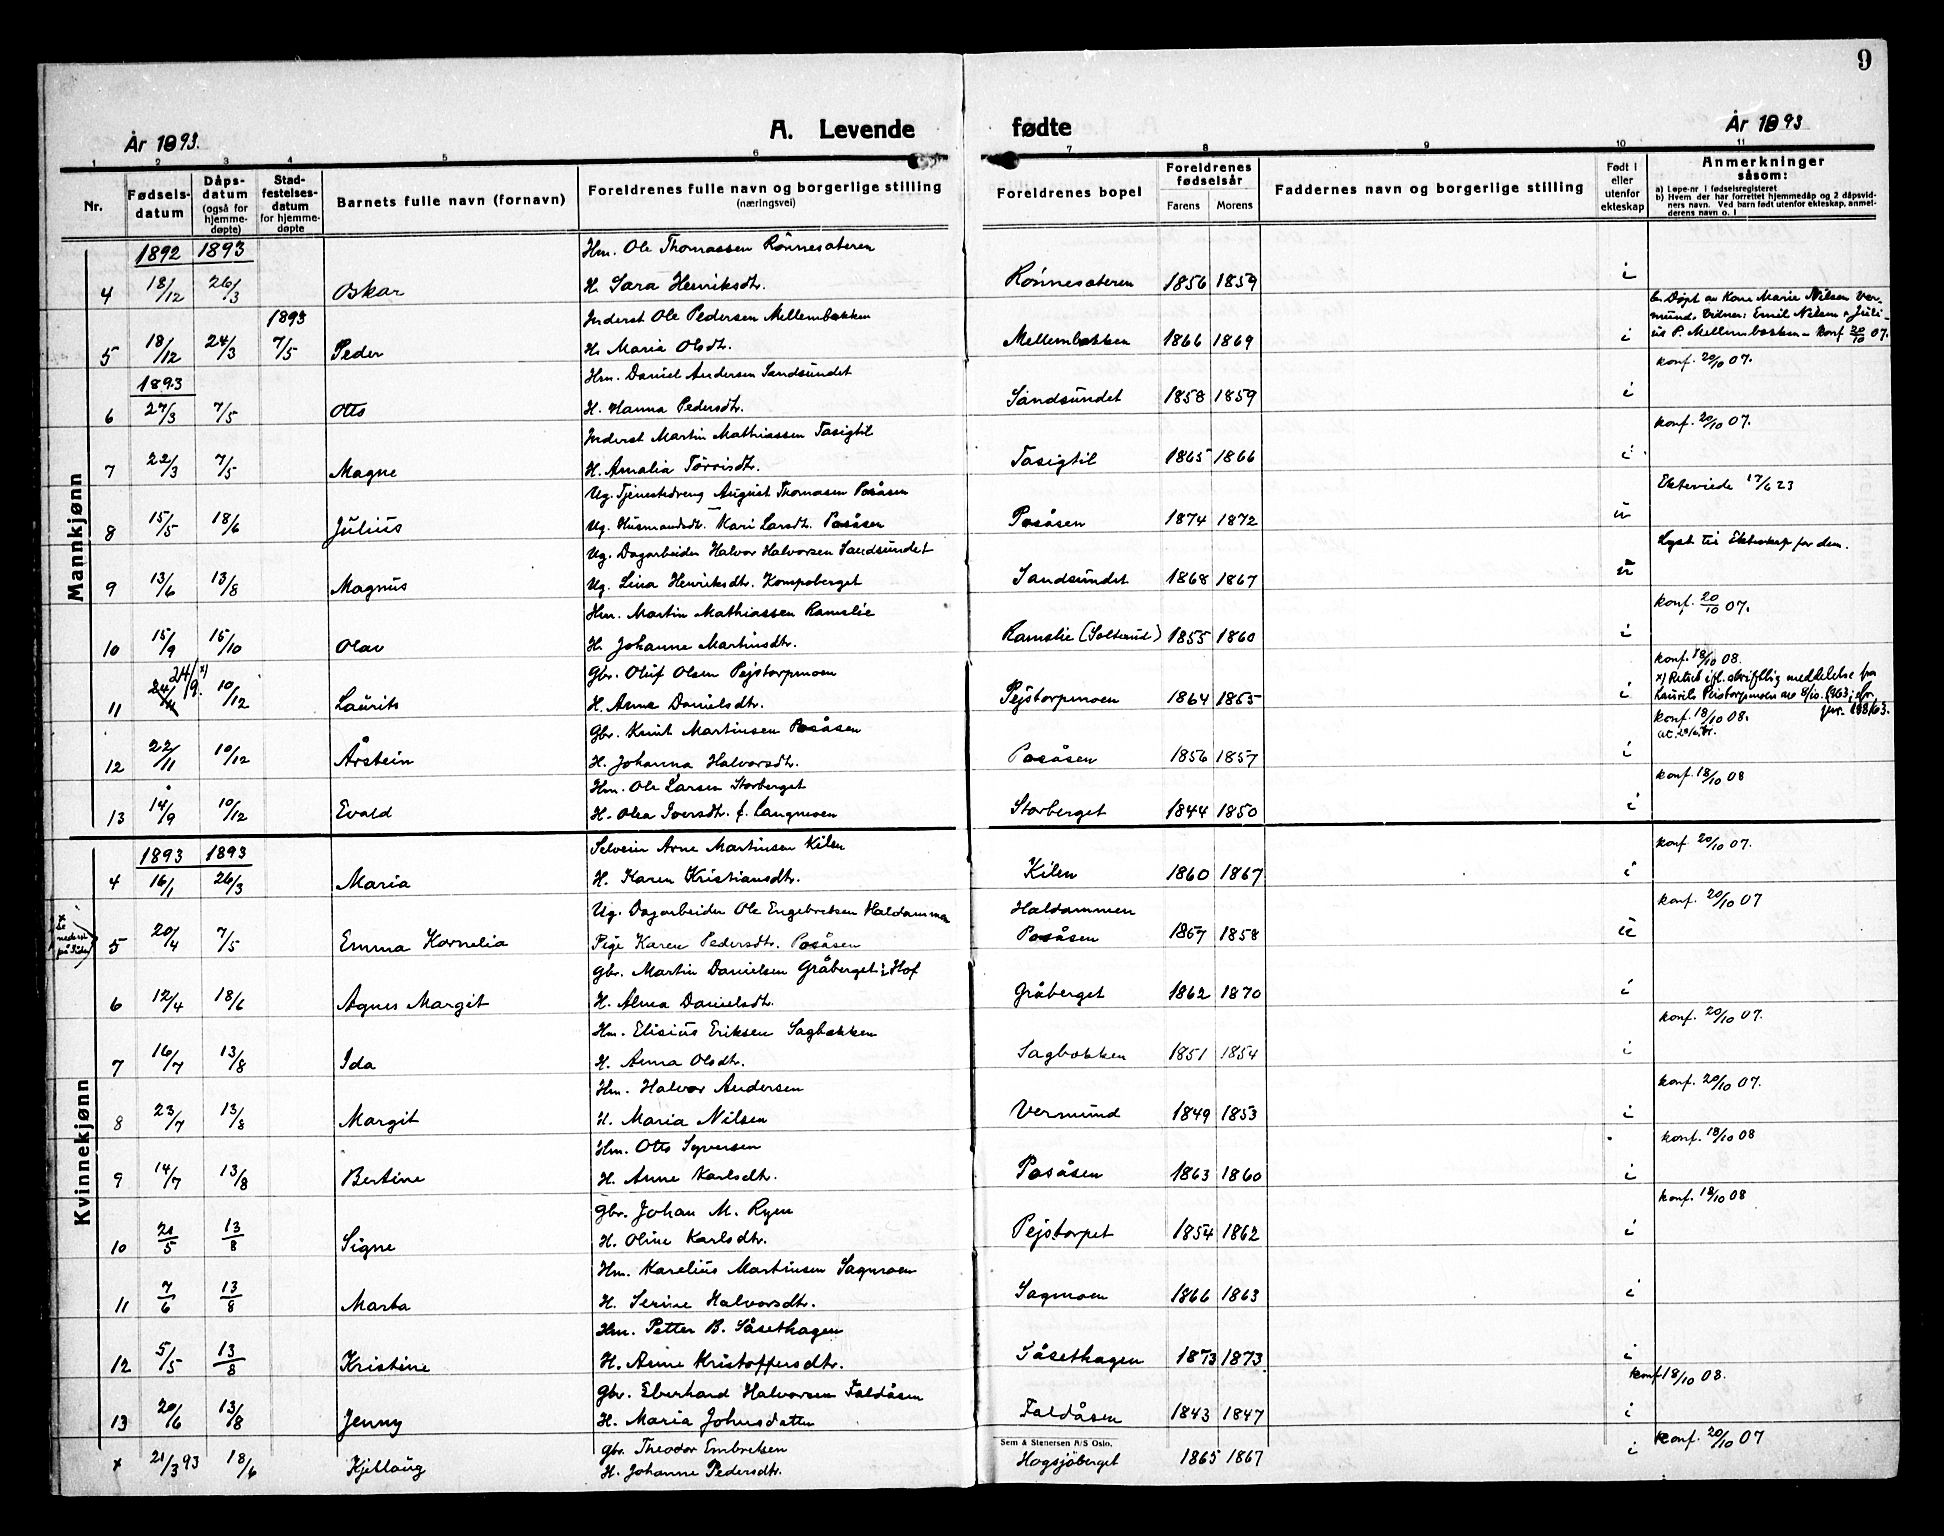 9
År 1893.
A. Levende fødte
År 1893
1 2 3 4 5 6 7 8 9 10 11
Nr.
Fødsels-datum
Dåps-datum (også for hjemme-døpte)
Stad-festelses-datum for hjemme-døpte
Barnets fulle navn (fornavn)
Foreldrenes fulle navn og borgerlige stilling (næringsvei)
Foreldrenes bopel
Foreldrenes fødselsår
Farens Morens
Faddernes navn og borgerlige stilling
Født i eller utenfor ekteskap
Anmerkninger såsom:
a) Løpe-nr i fødselsregistret
b) Hvem der har forrettet hjemmedåp og 2 dåpsvidners navn. Ved barn født utenfor ekteskap, anmelderens navn o. l
Mannkjønn
1892 1893 Hm. Ole Thomassen Rönnesæteren
4 18/12 26/3 Oskar H. Sara Henriksdtr. Rönnesæteren 1856 1859 i
1893 Inderst Ole Pedersen Mellembækken b. Døpt av Kone Marie Nilsen Vermund. Vidner: Emil Nilsen o Julius P. Mellembækken - konf 20/10 07.
5 18/12 24/3 7/5 Peder H. Maria Olsdt. Mellembækken 1866 1869 i
1893 Hm. Daniel Andersen Sandsundet konf. 20/10 07.
6 27/3 7/5 Otto H. Hanna Pedersdtr. Sandsundet 1858 1859 i
Inderst Martin Mathiassen Tasigtil konf. 20/10 07.
7 22/3 7/5 Magne H. Amalia Törrisdtr. Tasigtil 1865 1866 i
Ug. Tjenestedreng August Thomasen Posåsen Ekteviede 17/6 23
8 15/5 18/6 Julius Ug. Husmandsdtr. Kari Larsdt. Posåsen Posåsen 1874 1872 u
Ug. Dagarbeider Halvor Halvorsen Sandsundet Lyst til Ekteskap for dem.
9 13/6 13/8 Magnus Ug. Lina Henriksdtr. Kompaberget Sandsundet 1868 1867 u
Hm. Martin Mathiassen Ramslie konf. 20/10 07.
10 15/9 15/10 Olav H. Johanne Martinsdtr. Ramslie (Solterud) 1855 1860 i
Gbr. Oluf Olsen Pejstorpmoen konf. 18/10 08.
11 24/11 24/9. x) 10/12 Laurits H. Anne Danielsdtr. Pejstorpmoen 1864 1865 i x) Rettet ifl. skriftlig meddelelse fra Laurits Peistorpmoen av 8/10. 1963; cfr. jnr. 188/63.
Gbr. Knut Martinsen Posåsen konf. 18/10 08.
12 22/11 10/12 Årstein H. Johanna Halvorsdtr. Posåsen 1856 1857 i
Hm. Ole Larsen Storberget konf. 18/10 08
13 14/9 10/12 Evald H. Olea Iversdtr. f. Langmoen Storberget 1844 1850 i
Kvinnekjønn
1893 1893 Selveier Arne Martinsen Kilen konf 20/10 07.
4 16/1 26/3 Maria H. Karen Kristiansdtr. Kilen 1860 1867 i
Ug. Dagarbeider Ole Engebretsen Haldammen Haldammen konf. 20/10 07
x Se nederst på siden 5 20/4 7/5 Emma Kornelia Pige Karen Pedersdtr. Posåsen Posåsen 1867 1858 u
Gbr. Martin Danielsen Gråberget i Hof
6 12/4 18/6 Agnes Margit H. Alma Danielsdt. Gråberget 1862 1870 i
Hm. Elisius Eriksen Sagbækken konf. 20/10 07.
7 16/7 13/8 Ida H. Anna Olsdtr. Sagbækken 1851 1854 i
Hm. Halvor Andersen konf. 20/10 07.
8 23/7 13/8 Margit H. Maria Nilsen Vermund 1849 1853 i
Hm. Otto Syversen konf. 18/10 08
9 14/7 13/8 Bertine H. Anne Karlsdt. Posåsen 1863 1860 i
Gbr. Johan M. Ryen konf. 18/10 08
10 21/5 13/8 Signe H. Oline Karlsdtr. Pejstorpet 1854 1862 i
Hm. Karelius Martinsen Sagmoen
11 7/6 13/8 Marta H. Serine Halvorsdtr. Sagmoen 1866 1863 i
Hm. Petter B. Såsethagen
12 5/5 13/8 Kristine H. Anne Kristoffersdtr. Såsethagen 1873 1873 i
Gbr. Eberhard Halvorsen Faldåsen konf 18/10 08.
13 20/6 13/8 Jenny H. Maria Johnsdatter Faldåsen 1843 1847 i
Sem & Stenersen A/S Oslo.
Gbr. Theodor Embretsen konf. 20/10 07
x 21/3 93 18/6 Kjellaug H. Johanne Pedersdtr. Hogsjöberget 1865 1867 i